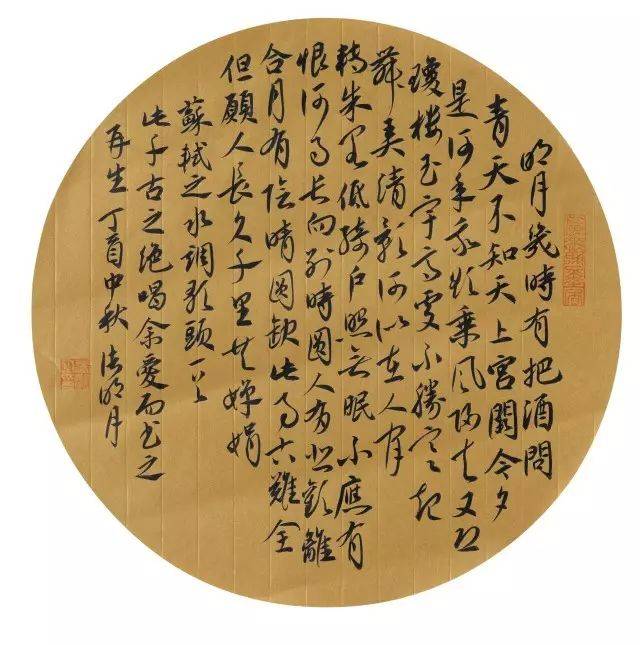 明月幾時有把酒問
青天不知天上宮闕今夕
是何年我欲乘風歸去又恐
瓊樓玉宇高處不勝寒起
舞弄清影何似在人間
轉朱閣低綺戶照無眠不應有
恨何事長向別時圓人有悲歡離
合月有陰晴圓缺此事古難全
但願人長久千里共嬋娟
蘇軾之水調歌頭一首
此千古之絕唱余愛而書之
再生丁酉中秋明月